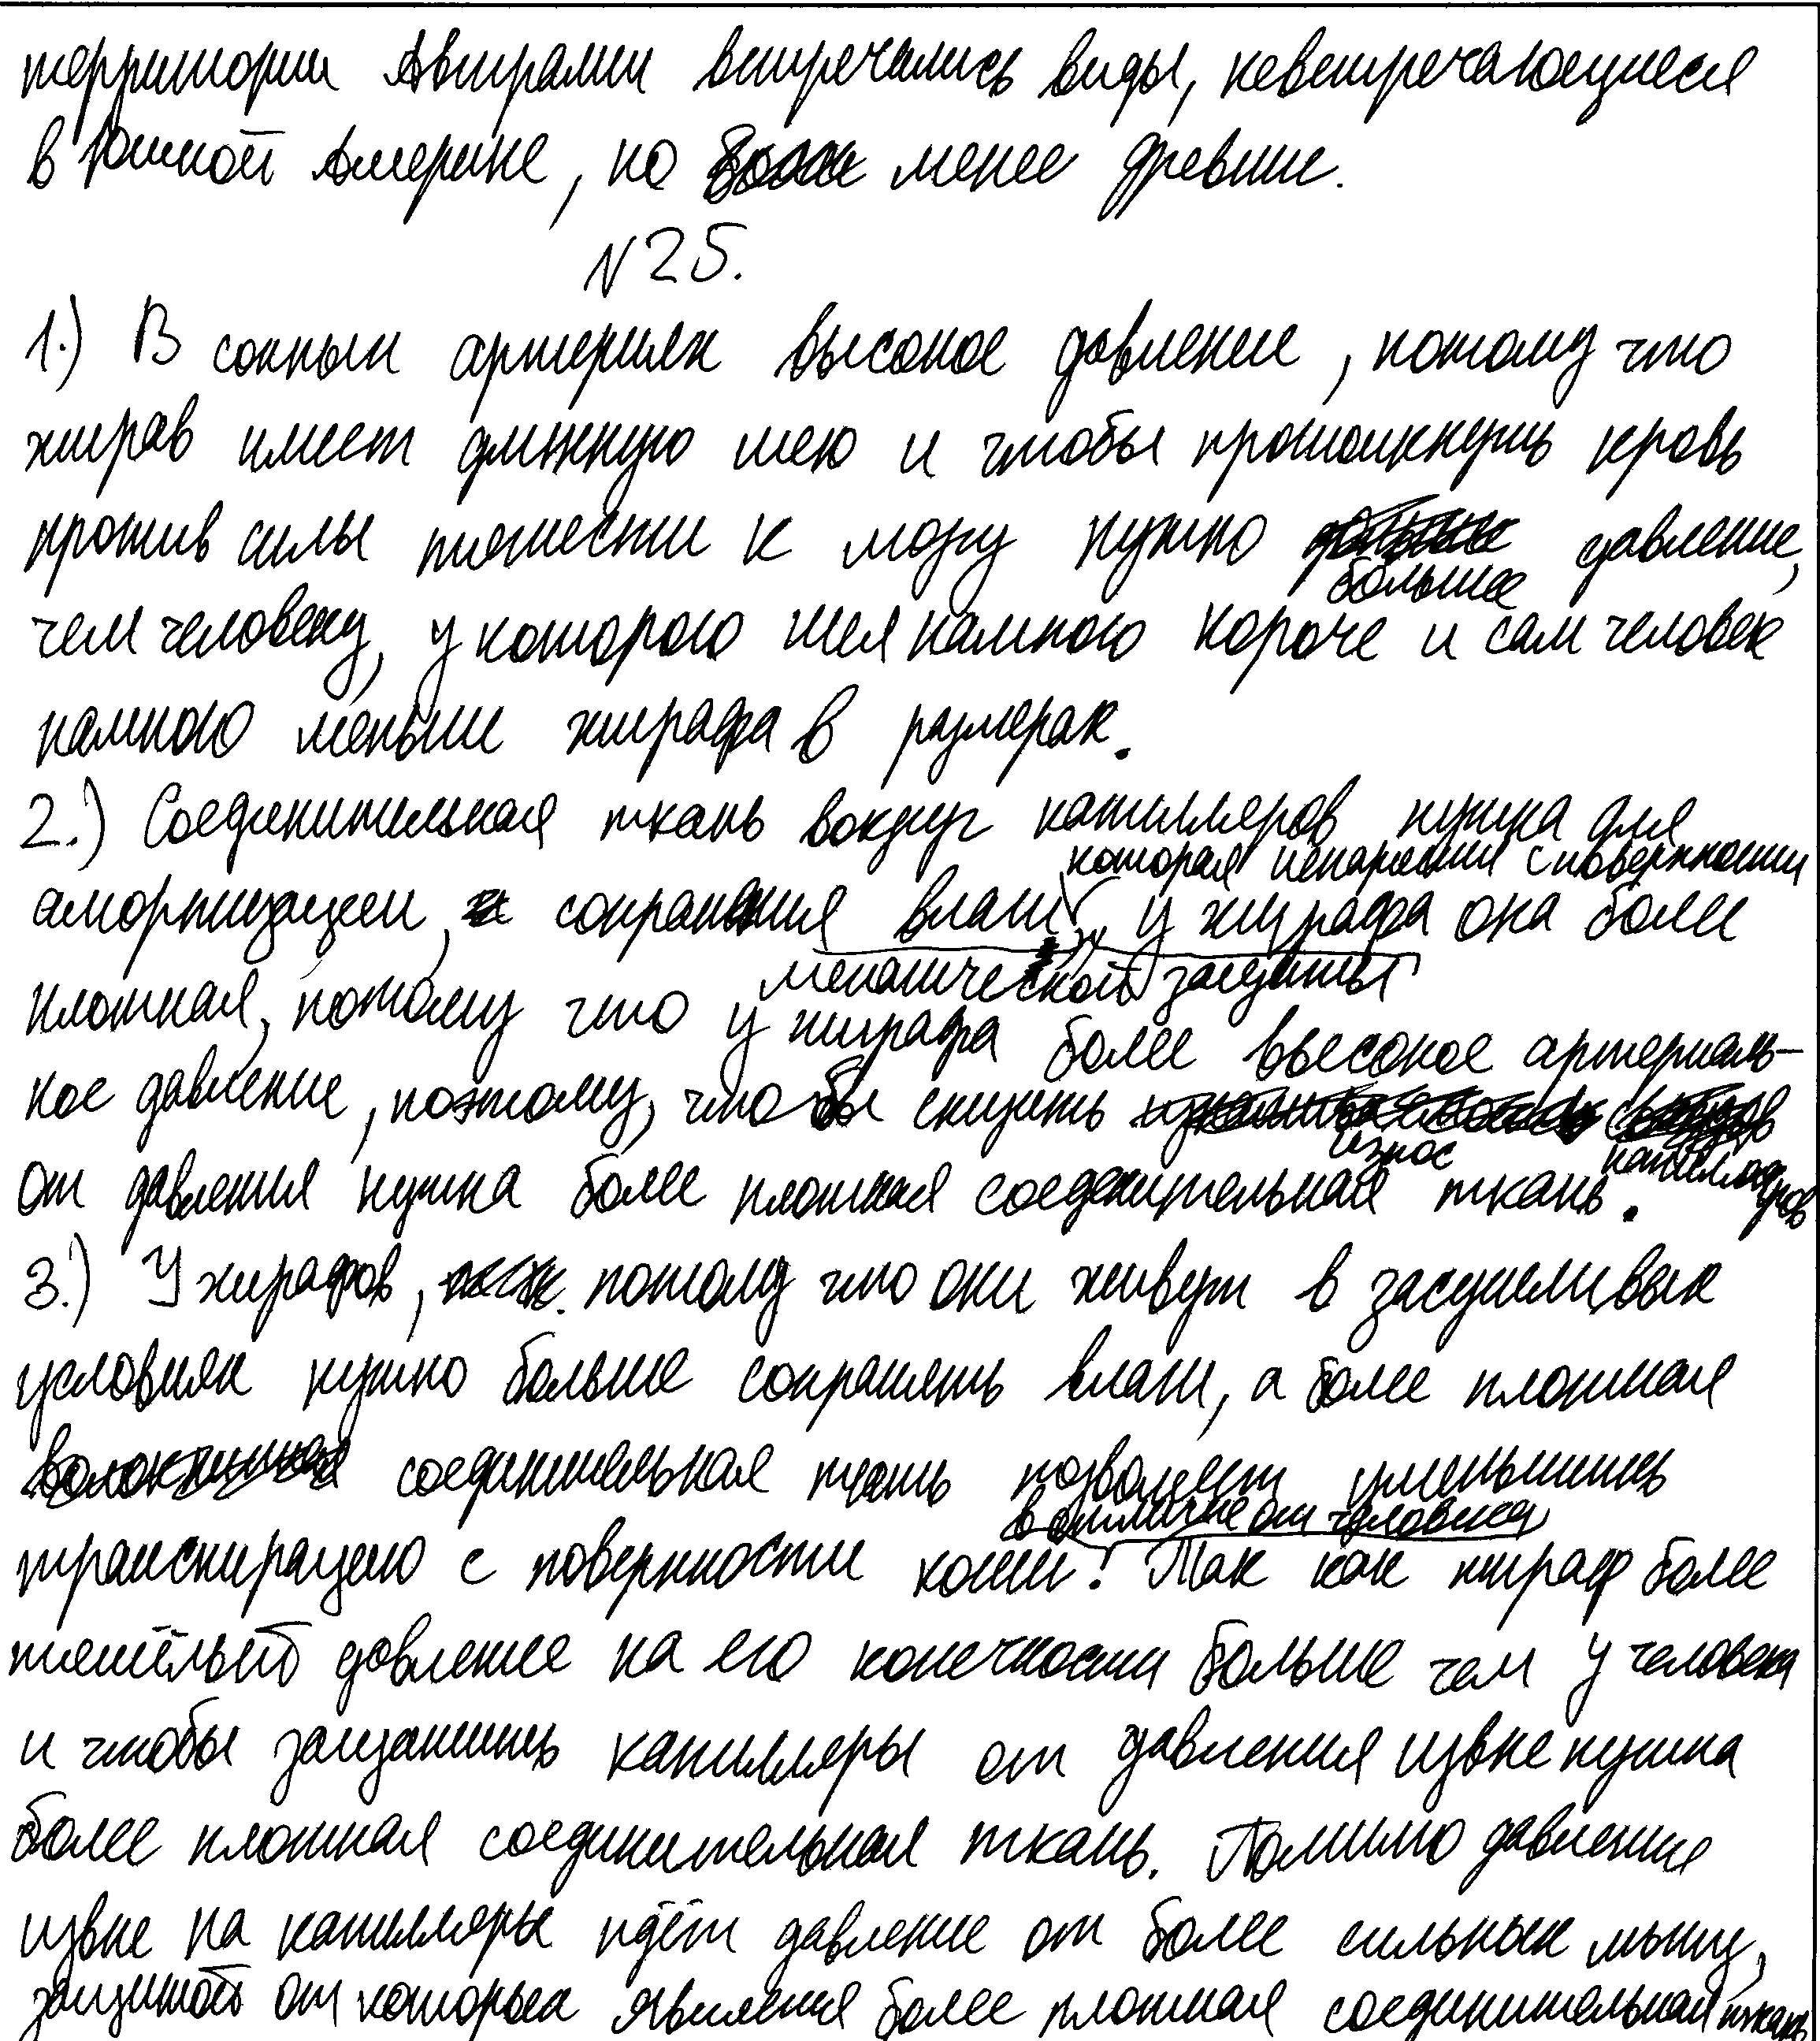 территории Австралии встречались виды, невстречающиеся
в Южной Америке, но менее древние.
№25.
1.) В сонных артериях высокое давление, потому что
жирав имеет длинную шею и чтобы протолкнуть кровь
против силы тяжести к мозгу нужно большее давление,
чем человеку, у которого шея намного короче и сам человек
намного меньше жирафа в размерах.
2.) Соединительная ткань вокруг капилляров нужна для
амортизации, сохранения влаги, которая испарести с поверхности
механической защиты, у жирафа она более
плотная, потому что у жирафа более высокое артериаль-
ное давление, поэтому, что бы снизить износ капилляров
от давления нужна более плотная соединительная ткань.
3.) У жирафов, потому что они живут в засушливых
условиях нужно больше сохранять влаги, а более плотная
соединительная ткань позволяет уменьшить
транспирацию с поверхности кожи в отличие от человека. Так как жираф более
тяжёлый давление на его конечности больше чем у человека
и чтобы защитить капилляры от давления извне нужна
более плотная соединительная ткань. Помимо давления
извне на капилляры идёт давление от более сильных мышц,
защитой от которых является более плотная соединительная ткань